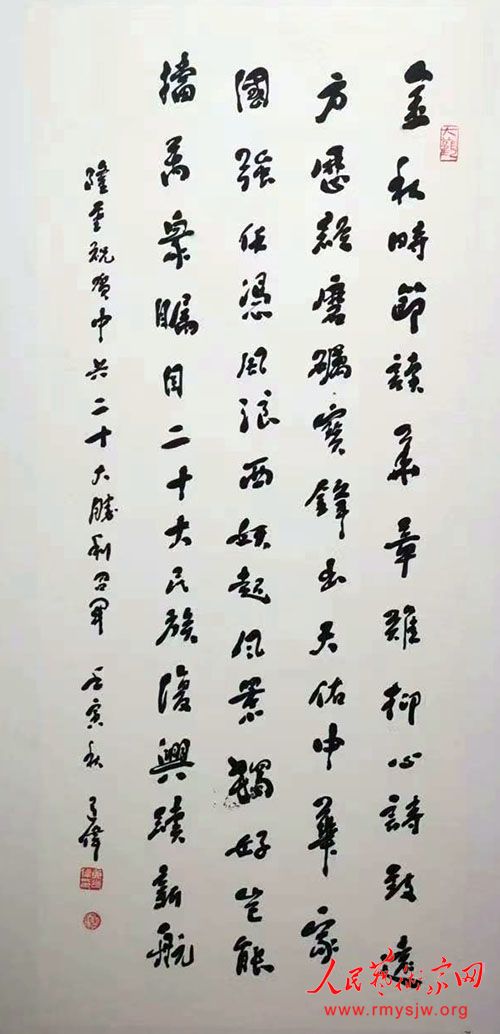 金秋時節讀華章難抑心詩致遠
方歷經磨礪寶鋒出天佑中華家
國強任憑風浪西妖起風景獨好豈能
擋萬衆矚目二十大民族復興續新航
隆重祝賀中共二十大勝利召開 壬寅秋 偉
人民藝術家网
www.rmysjw.org